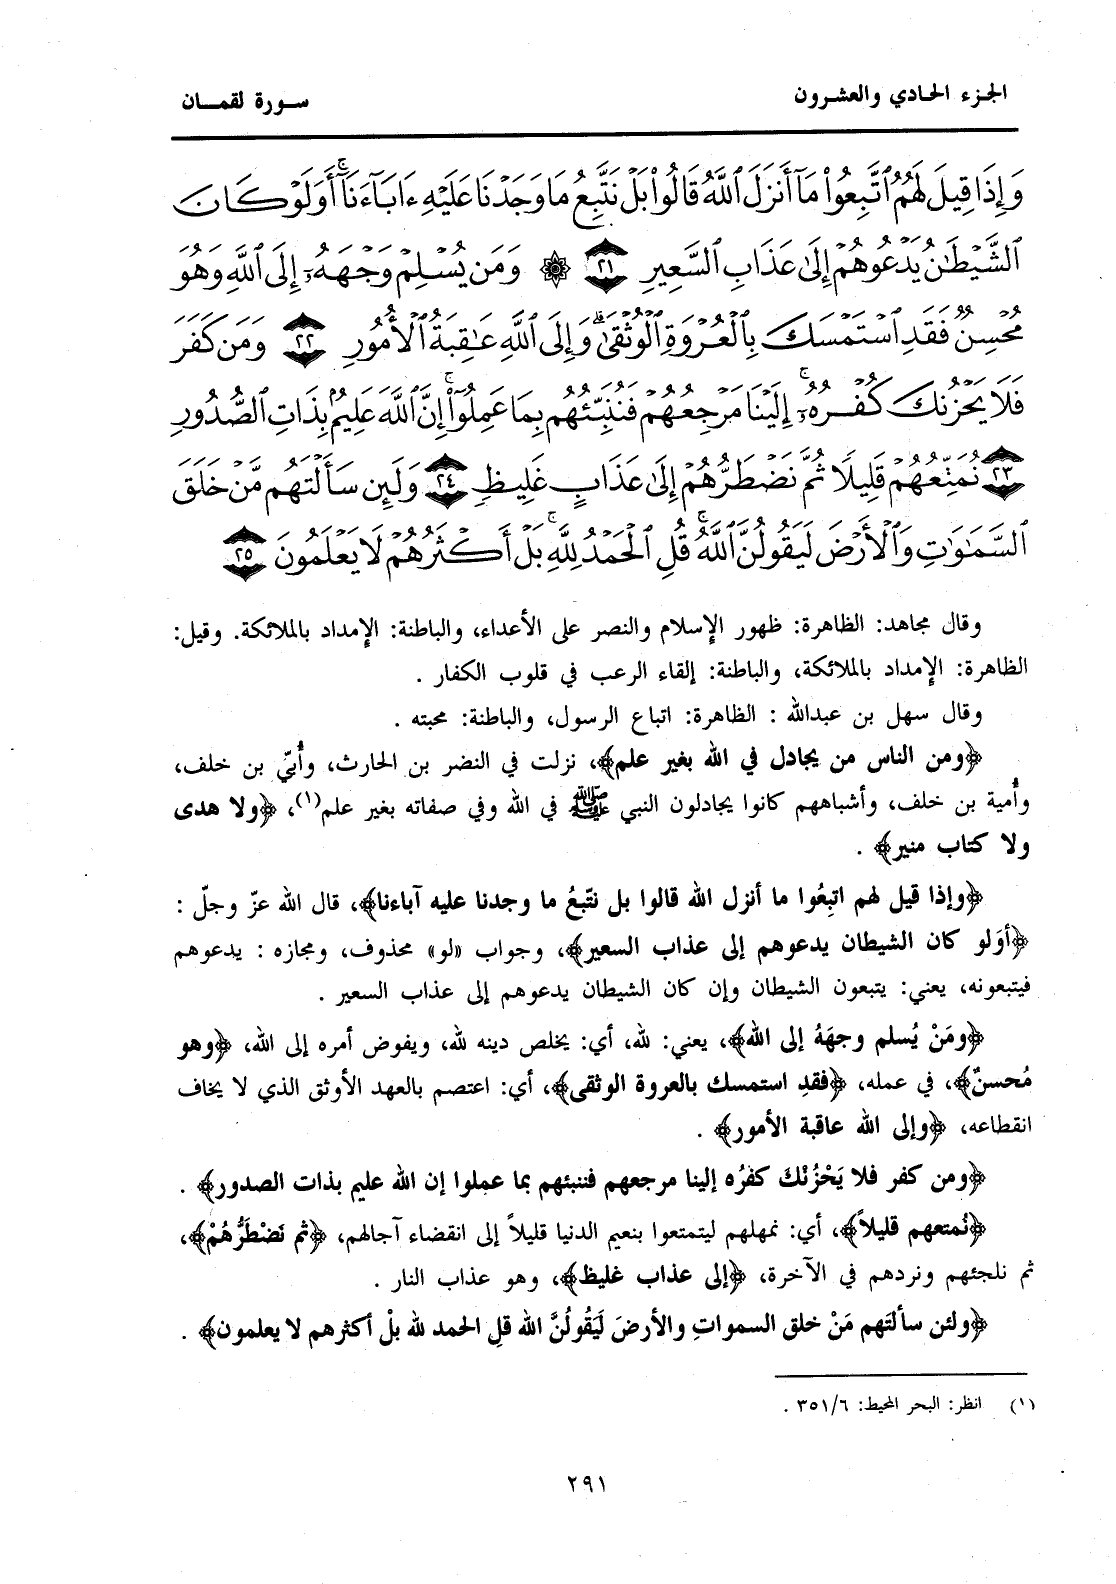 الجزء الحادي والعشرون
سورة لقمان
وَإِذَا قِيلَ لَهُمُ ٱتَّبِعُوا۟ مَآ أَنزَلَ ٱللَّهُ قَالُوا۟ بَلْ نَتَّبِعُ مَا وَجَدْنَا عَلَيْهِ ءَابَآءَنَآ ۚ أَوَلَوْ كَانَ
ٱلشَّيْطَٰنُ يَدْعُوهُمْ إِلَىٰ عَذَابِ ٱلسَّعِيرِ ٢١ ۞ وَمَن يُسْلِمْ وَجْهَهُۥٓ إِلَى ٱللَّهِ وَهُوَ
مُحْسِنٌ فَقَدِ ٱسْتَمْسَكَ بِٱلْعُرْوَةِ ٱلْوُثْقَىٰ ۗ وَإِلَى ٱللَّهِ عَٰقِبَةُ ٱلْأُمُورِ ٢٢ وَمَن كَفَرَ
فَلَا يَحْزُنكَ كُفْرُهُۥٓ ۚ إِلَيْنَا مَرْجِعُهُمْ فَنُنَبِّئُهُم بِمَا عَمِلُوٓا۟ ۚ إِنَّ ٱللَّهَ عَلِيمٌۢ بِذَاتِ ٱلصُّدُورِ
٢٣ نُمَتِّعُهُمْ قَلِيلًا ثُمَّ نَضْطَرُّهُمْ إِلَىٰ عَذَابٍ غَلِيظٍ ٢٤ وَلَئِن سَأَلْتَهُم مَّنْ خَلَقَ
ٱلسَّمَٰوَٰتِ وَٱلْأَرْضَ لَيَقُولُنَّ ٱللَّهُ ۚ قُلِ ٱلْحَمْدُ لِلَّهِ ۚ بَلْ أَكْثَرُهُمْ لَا يَعْلَمُونَ ٢٥
وقال مجاهد: الظاهرة: ظهور الإسلام والنصر على الأعداء، والباطنة: الإمداد بالملائكة. وقيل:
الظاهرة: الإمداد بالملائكة، والباطنة: إلقاء الرعب في قلوب الكفار .
وقال سهل بن عبدالله : الظاهرة: اتباع الرسول، والباطنة: محبته .
﴿ومن الناس من يجادل في الله بغير علم﴾، نزلت في النضر بن الحارث، وأُبيّ بن خلف،
وأمية بن خلف، وأشباههم كانوا يجادلون النبي ﷺ في الله وفي صفاته بغير علم(١)، ﴿ولا هدى
ولا كتاب منير﴾ .
﴿وإذا قيل لهم اتبِعُوا ما أنزل الله قالوا بل نتّبعُ ما وجدنا عليه آباءنا﴾، قال الله عزّ وجلّ :
﴿أوَلو كان الشيطان يدعوهم إلى عذاب السعير﴾، وجواب «لو» محذوف، ومجازه : يدعوهم
فيتبعونه، يعني: يتبعون الشيطان وإن كان الشيطان يدعوهم إلى عذاب السعير .
﴿ومَنْ يُسلم وجهَهُ إلى الله﴾، يعني: لله، أي: يخلص دينه لله، ويفوض أمره إلى الله، ﴿وهو
مُحسنٌ﴾، في عمله، ﴿فقدِ استمسك بالعروة الوثقى﴾، أي: اعتصم بالعهد الأوثق الذي لا يخاف
انقطاعه، ﴿وإلى الله عاقبة الأمور﴾ .
﴿ومن كفر فلا يَحْزُنْكَ كفرُه إلينا مرجعهم فننبئهم بما عملوا إن الله عليم بذات الصدور﴾ .
﴿نُمتعهم قليلاً﴾، أي: نمهلهم ليتمتعوا بنعيم الدنيا قليلاً إلى انقضاء آجالهم، ﴿ثم نَضْطَرُّهُمْ﴾،
ثم نلجئهم ونردهم في الآخرة، ﴿إلى عذاب غليظ﴾، وهو عذاب النار .
﴿ولئن سألتَهم مَنْ خلق السمواتِ والأرضَ لَيَقُولُنَّ الله قلِ الحمد لله بلْ أكثرهم لا يعلمون﴾ .
(١) انظر: البحر المحيط: ٣٥١/٦ .
٢٩١